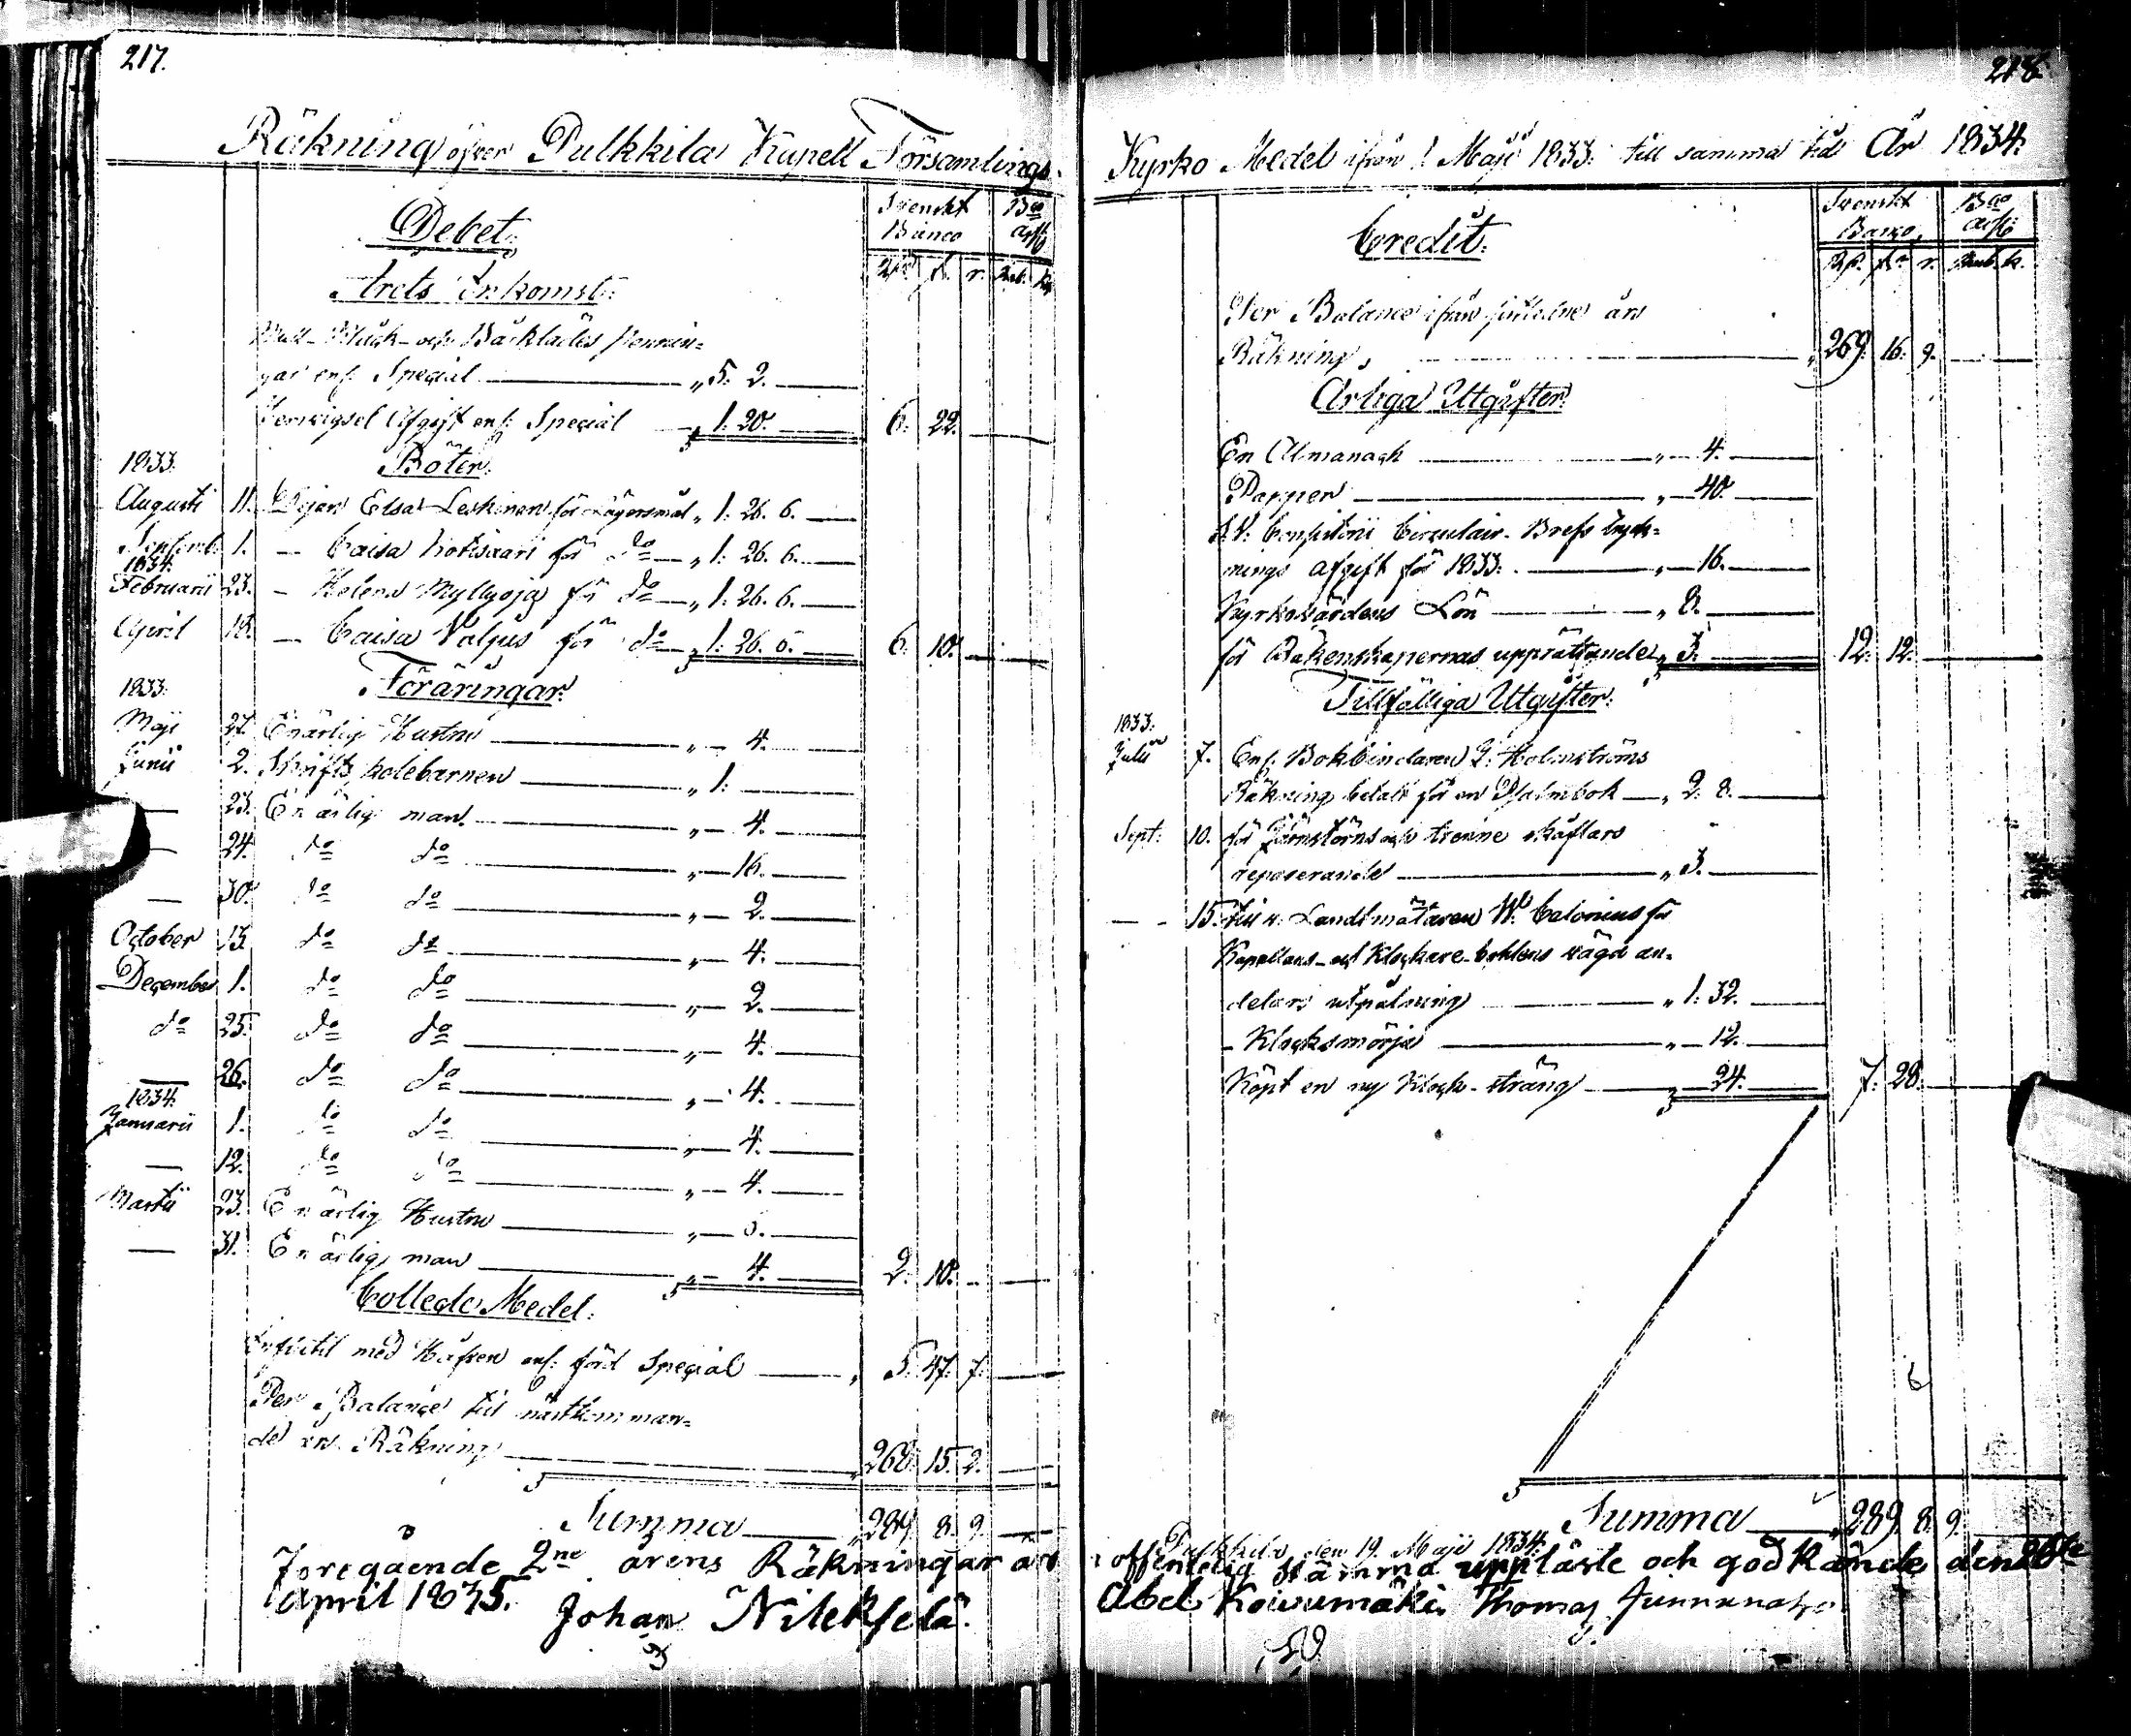 217.
Räkning öfver Pulkkila Kapell Församlings
Debet.
Svenskt Banco
Bco Assg
Rd. s. r. Rub. k.
Årets Inkomst:
och Båcklades pennin=
gar enl. Special „ 5. 2.
Afgift enl. Special „ 1: 20. 6. 22.
1833.
Böter.
Augusti 11. Pigan Elsa Leskinen för Lägersmål „ 1: 26. 6.
Septemb. 1. — Caisa Kotisaari för do „ 1: 26. 6.
1834.
Februarii 23. — Helena Myllyoja för do „ 1: 26. 6.
April 18. — Caisa Valjus för do „ 1: 26. 6. 6. 10.
1833.
Föräringar.
Maji 27. En ärlig Hustru „ — 4.
Junii 2. Skriftskolebarnen „ 1:
— 23. En ärlig man „ — 4.
— 24. do do „ — 16.
— 30. do do „ — 2.
October 13. do do „ — 4.
December 1. do do „ — 2.
do 25. do do „ — 4.
— 26. do do „ — 4.
1834.
Januarii 1. do do „ — 4.
— 12. do do „ — 4.
Martii 23. En ärlig Hustru „ —
— 31. En ärlig man „ — 4. 2. 10.
Collect Medel.
Influtit med Håfven enl. förd Special „ 5. 47. 7.
Per Balance till nästkomman=
de års Räkning „ 268. 15. 2.
Summa „ 289. 8. 9.
Foregående 2ne årens Räkningar är
April 1835.
Johan Nilekselä.
218.
Kyrko Medel ifrån 1 Maji 1833. till samma tid År 1834.
Credit.
Svenskt Banco.
Bco Assg
Rd. s. r. Rub. k.
Per Balance ifrån sistledne års
Räkning, „ 269. 16. 9.
Årliga Utgifter.
En Almanach „ — 4.
Papper „ — 40.
H.V. Consistorii Circulair-Brefs tryck=
nings afgift för 1833. „ — 16.
Kyrkovärdens Lön „ 8.
för Räkenskapernas upprättande „ 3. 12. 12.
Tillfälliga Utgifter.
1833.
Julii 7. Enl. Bokbindaren J. Holmströms
Räkning betalt för en Psalmbok „ 2. 8.
Sept: 10. för Jernstörns och trenne skåflars
reparerande „ 3.
— 15. till v. Landtmätaren W. Calonius för
Kapellans- och Klockare-bohlens väga an=
delars utpålning „ 1: 32.
- Klocksmörja „ — 12.
Köpt en ny Klock-sträng — 24. 7. 28.
Summa „ 289. 8. 9.
Pulkkila den 19. Maji 1834.
offentelig stämma uppläste och godkände den 26te
Abel Koivumäki. Thomas